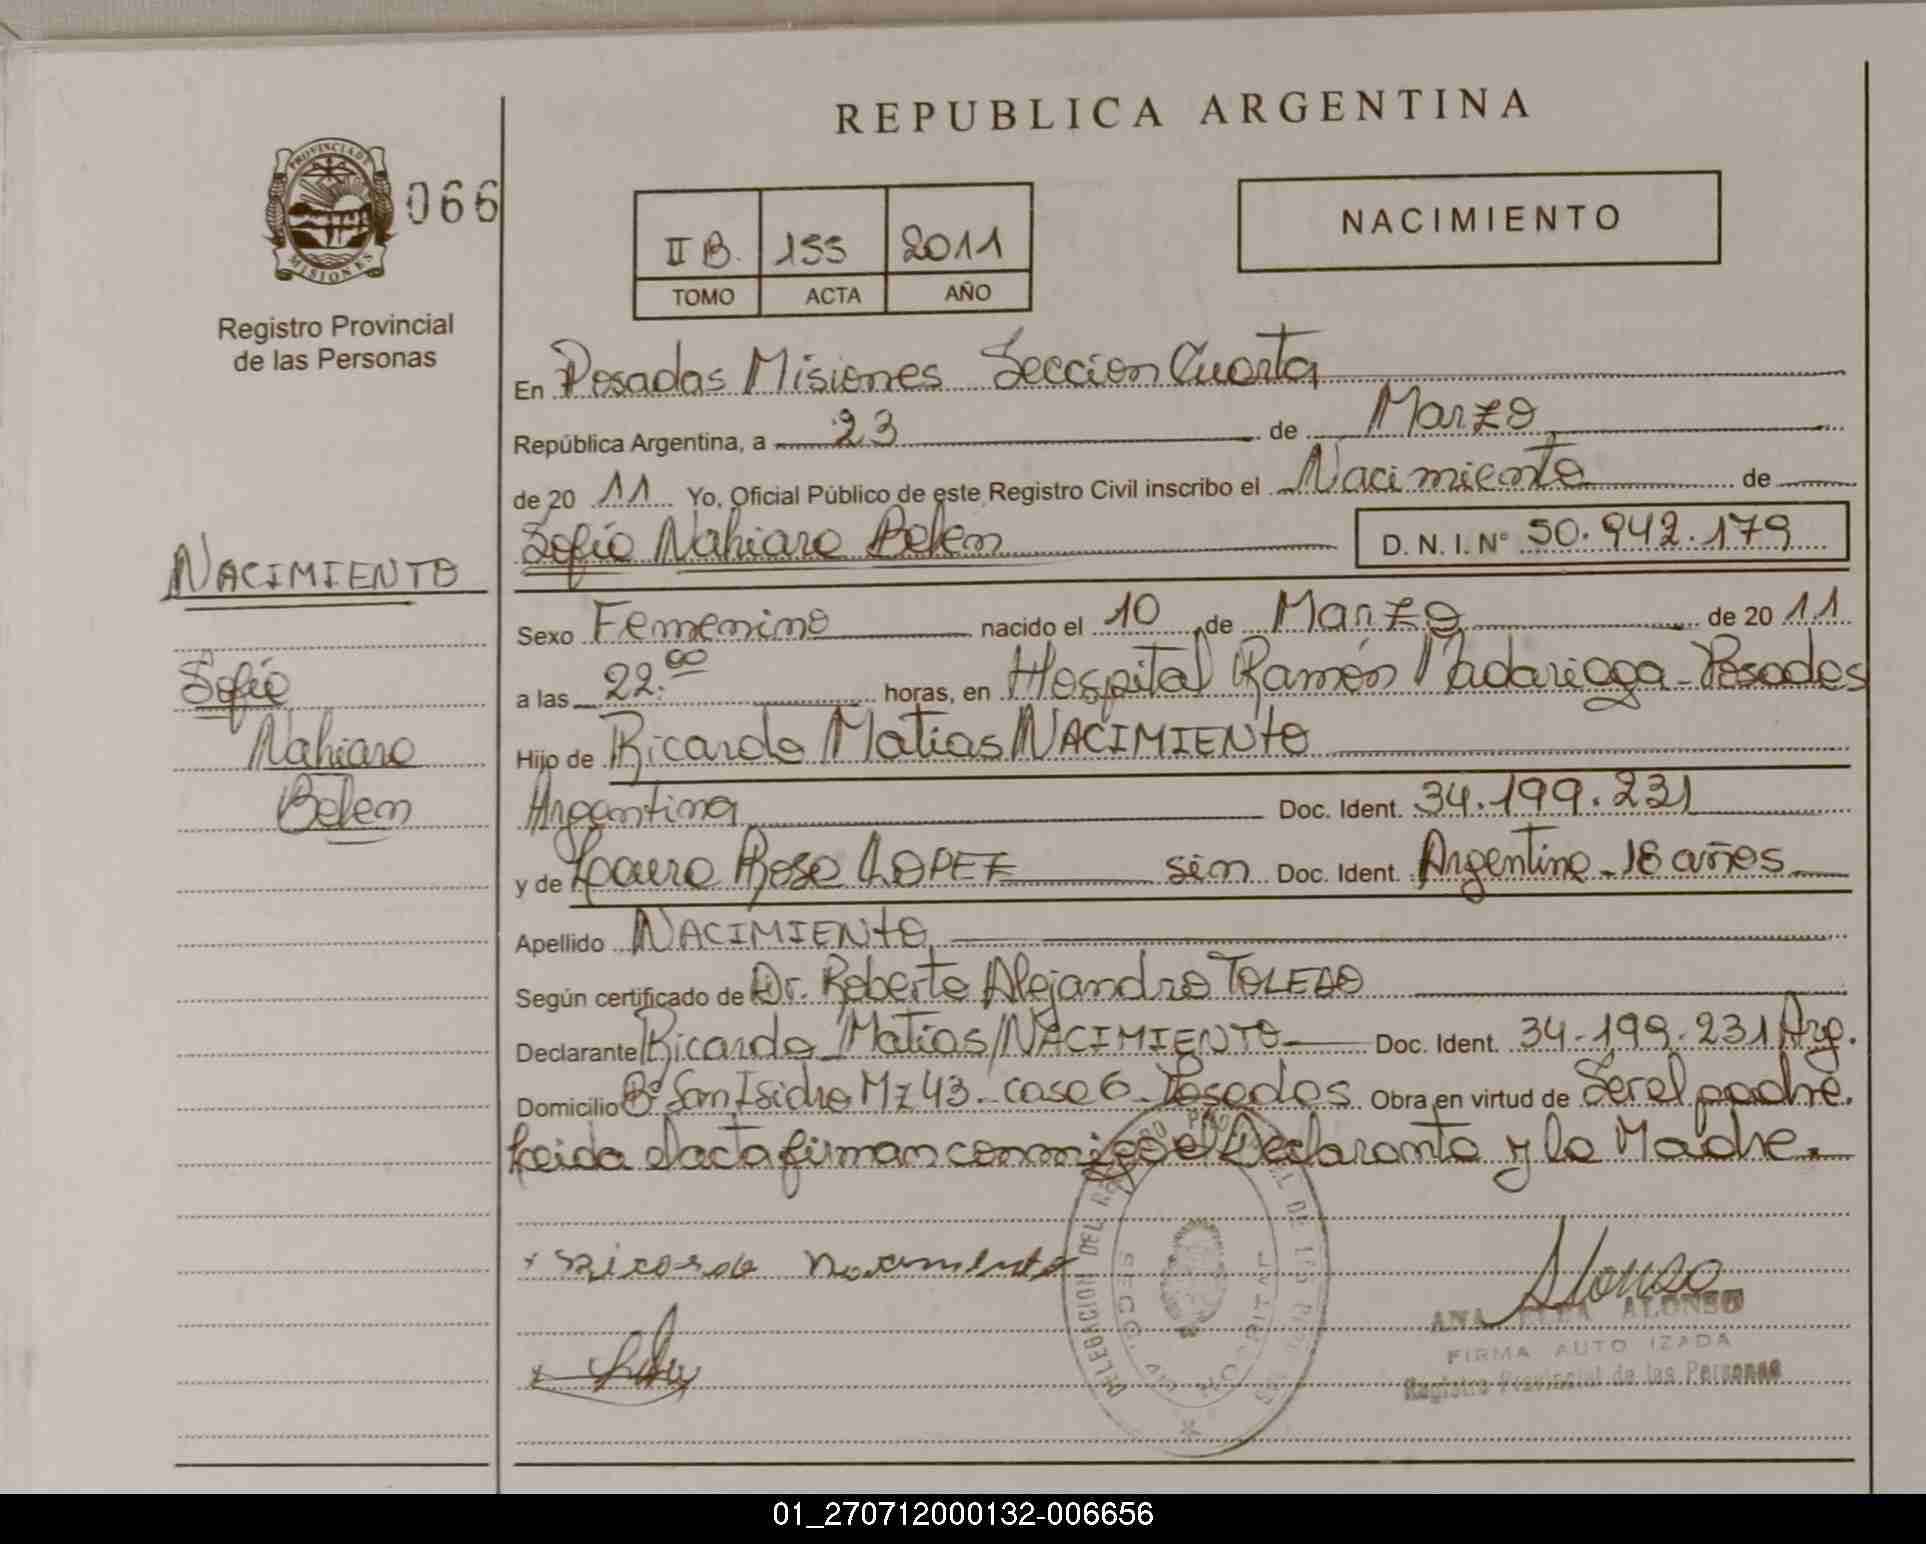 REPUBLICA ARGENTINA
PROVINCIA DE
MISIONES
066
Registro Provincial
de las Personas
II B. 155 2011
TOMO ACTA AÑO
NACIMIENTO
En Posadas Misiones Seccion Cuarta
República Argentina, a 23 de Marzo
de 20 11 Yo, Oficial Público de este Registro Civil inscribo el Nacimiento de
Sofia Nahiara Belen D. N. I. N° 50.942.179
NACIMIENTO
Sofia
Nahiara
Belen
Sexo Femenino nacido el 10 de Marzo de 20 11
a las 22.00 horas, en Hospital Ramón Madariaga - Posadas
Hijo de Ricardo Matias NACIMIENTO
Argentina Doc. Ident. 34.199.231
y de Laura Rosa LOPEZ sin Doc. Ident. Argentina - 18 años
Apellido NACIMIENTO
Según certificado de Dr. Roberto Alejandro TOLEDO
Declarante Ricardo Matias NACIMIENTO Doc. Ident. 34-199.231 Arg.
Domicilio B° San Isidro Mz 43 - casa 6 - Posadas Obra en virtud de Ser el padre.
Leida el acta firman conmigo el Declarante y la Madre.
x Ricardo Nacimiento
Alonso
ANA ALONSO
FIRMA AUTO IZADA
Registro Provincial de las Personas
DELEGACION DEL
SECC.
01_270712000132-006656